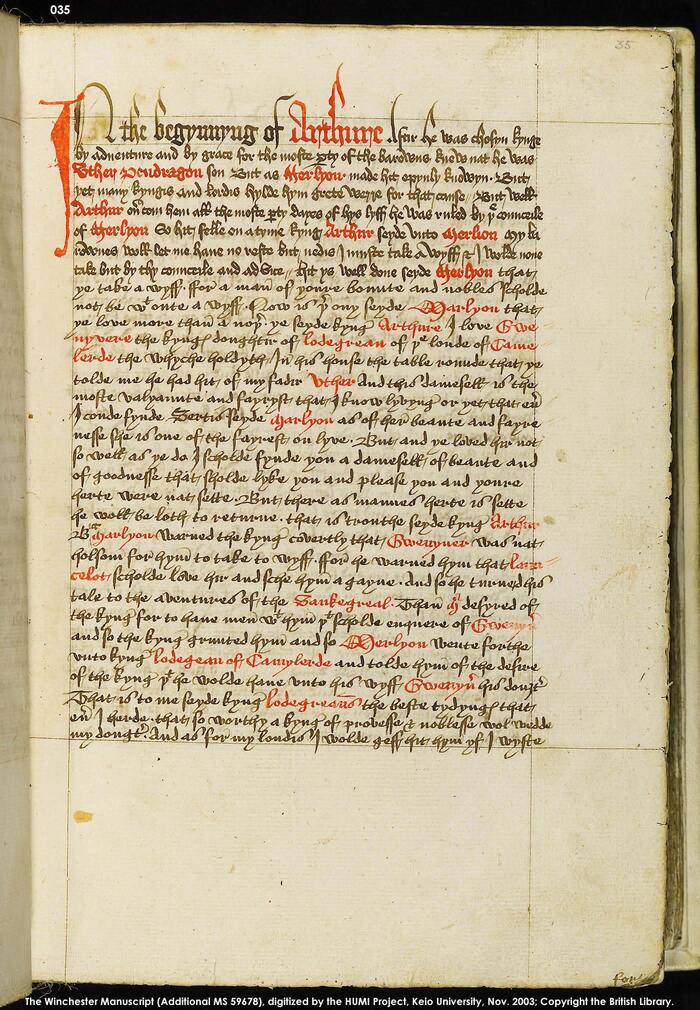 035
35
In the begynnyng of Arthure Aftir he was chosyn kynge
by adventure and by grace for the moste pty of the barowns knew nat he was
Uther Pendragon son But as Merlyon made hit opynly knowyn. But
yet many kyngis and lordis hylde hym grete werre for that cause. But well
Arthur ou͛com hem all the moste pty dayes of hys lyff he was ruled by yͤ counceile
of Merlyon So hit felle on a tyme kyng Arthur seyde unto Merlion my ba
rownes woll let me have no reste but nedis I muste take a wyff & I wolde none
take but by thy counceile and advice. hit ys well done seyde Merlyon that
ye take a wyff. ffor a man of youre bounte and nobles scholde
not be wᵗ oute a wyff. Now is yʳ ony seyde Marlyon that
ye love more than a noyʳ. ye seyde kyng Arthure I love Gwe
nyvere the kyngͭ doughtir of lodegrean of yͤ londe of Came
lerde the whyche holdyth In his house the table rounde that ye
tolde me he had hit of my fadir Uther And this damesell is the
moste valyaunte and fayryst that I know lyvyng or yet that eu͛
I coude fynde. Sertis seyde Marlyon as of her beaute and fayre
nesse she is one of the fayrest on lyve. But and ye loved hir not
so well as ye do I scholde fynde you a damesell of beaute and
of goodnesse that sholde lyke you and please you and youre
herte were nat sette. But there as mannes herte is sette
he woll be loth to returne. that is trouthe seyde kyng Arthur
B Marlyon warned the kyng covertly that Gwenyver was nat
holsom for hym to take to wyff. ffor he warned hym that laun
celot scholde love hir and sche hym a gayne. And so he turned his
tale to the aventures of the Sankegreal. Than desyred of
the kyng for to have men wᵗ hym yᵗ scholde enquere of Gwenyu͛
and so the kyng graunted hym and so Merlyon wente forthe
unto kyng lodegean of Camylerde and tolde hym of the desire
of the kyng yᵗ he wolde have unto his wyff Gwenyu͛ his douʒtʳ
That is to me seyde kyng lodegreauns the beste tydyngͭ that
eu͛ I herde. that so worthy a kyng of provesse & noblesse wol wedde
my douʒtʳ. And as for my londis I wolde geff hit hym yf I wyste
The Winchester Manuscript (Additional MS 59678), digitized by the HUMI Project, Keio University, Nov. 2003; Copyright the British Library.